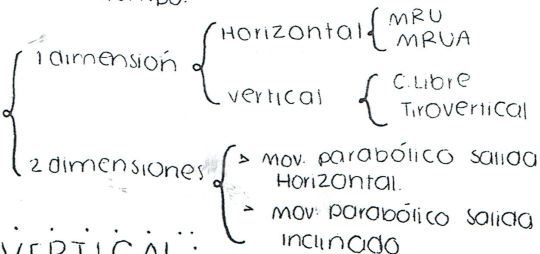 1 dimensión
Horizontal
MRU
MRUA
vertical
C. Libre
Tiro vertical
2 dimensiones
> mov. parabólico salida
Horizontal.
> mov. parabólico salida
inclinado
VERTICAL: